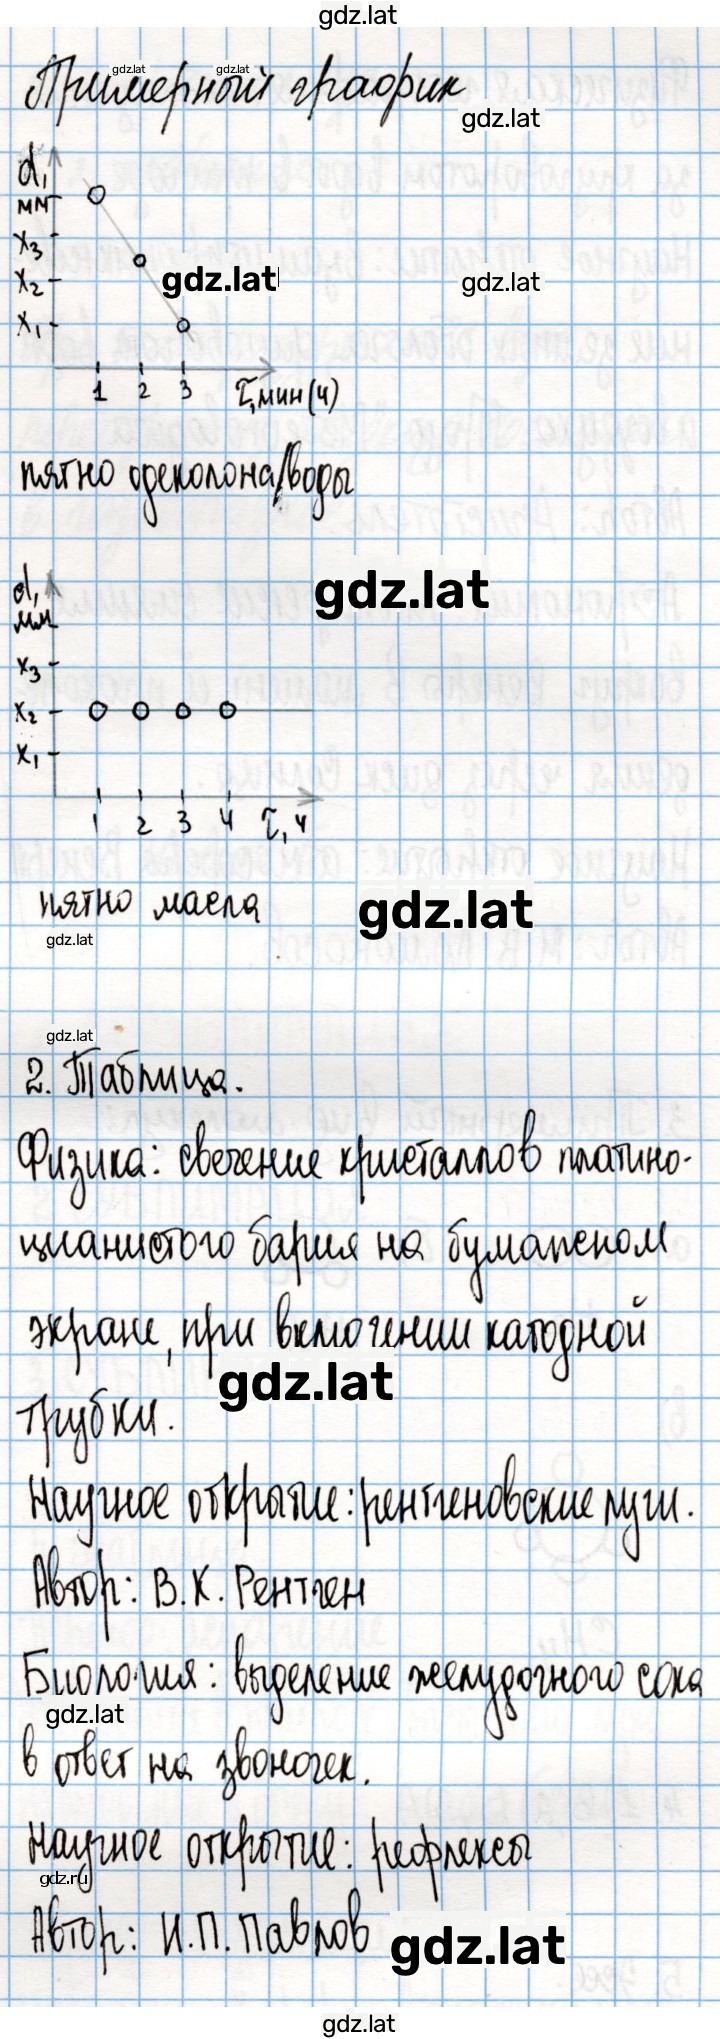 gdz.lat
gdz.lat gdz.lat
Примерный график
gdz.lat
d,
мм
x3
x2
x1
gdz.lat
gdz.lat
1 2 3 τ, мин (ч)
пятно одеколона/воды
d,
мм
gdz.lat
x3
x2
x1
1 2 3 4 τ, ч
пятно масла
gdz.lat
gdz.lat
gdz.lat
2. Таблица.
Физика: свечение кристаллов платино-
цианистого бария на бумажном
экране, при включении катодной
gdz.lat
трубки.
Научное открытие: рентгеновские лучи.
Автор: В.К. Рентген
Биология: выделение желудочного сока
gdz.lat
в ответ на звоночек.
Научное открытие: рефлексы
gdz.ru
Автор: И.П. Павлов
gdz.lat
gdz.lat